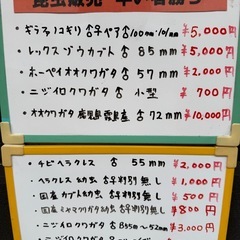 昆虫販売 早い者勝ち
・ギラファノコギリ ♂♀ペア 100mm/101mm ¥5,000円
・レックスゾウカブト ♂ 85mm ¥5,000円
・ホーペイオオクワガタ ♂ 57mm ¥2,000円
・ニジイロクワガタ ♂ 小型 ¥700円
・オオクワガタ 鹿児島 ♂ 72mm ¥10,000円
・チビヘラクレス ♂ 55mm ¥2,000円
・ヘラクレス幼虫 ♂♀判別無し ¥1,000円
・国産カブト幼虫 ♂♀判別無し ¥500円
・国産ミヤマクワガタ幼虫 ♂♀判別無し ¥800円
・ニジイロクワガタ ♂35mm〜52mm ¥3,000円